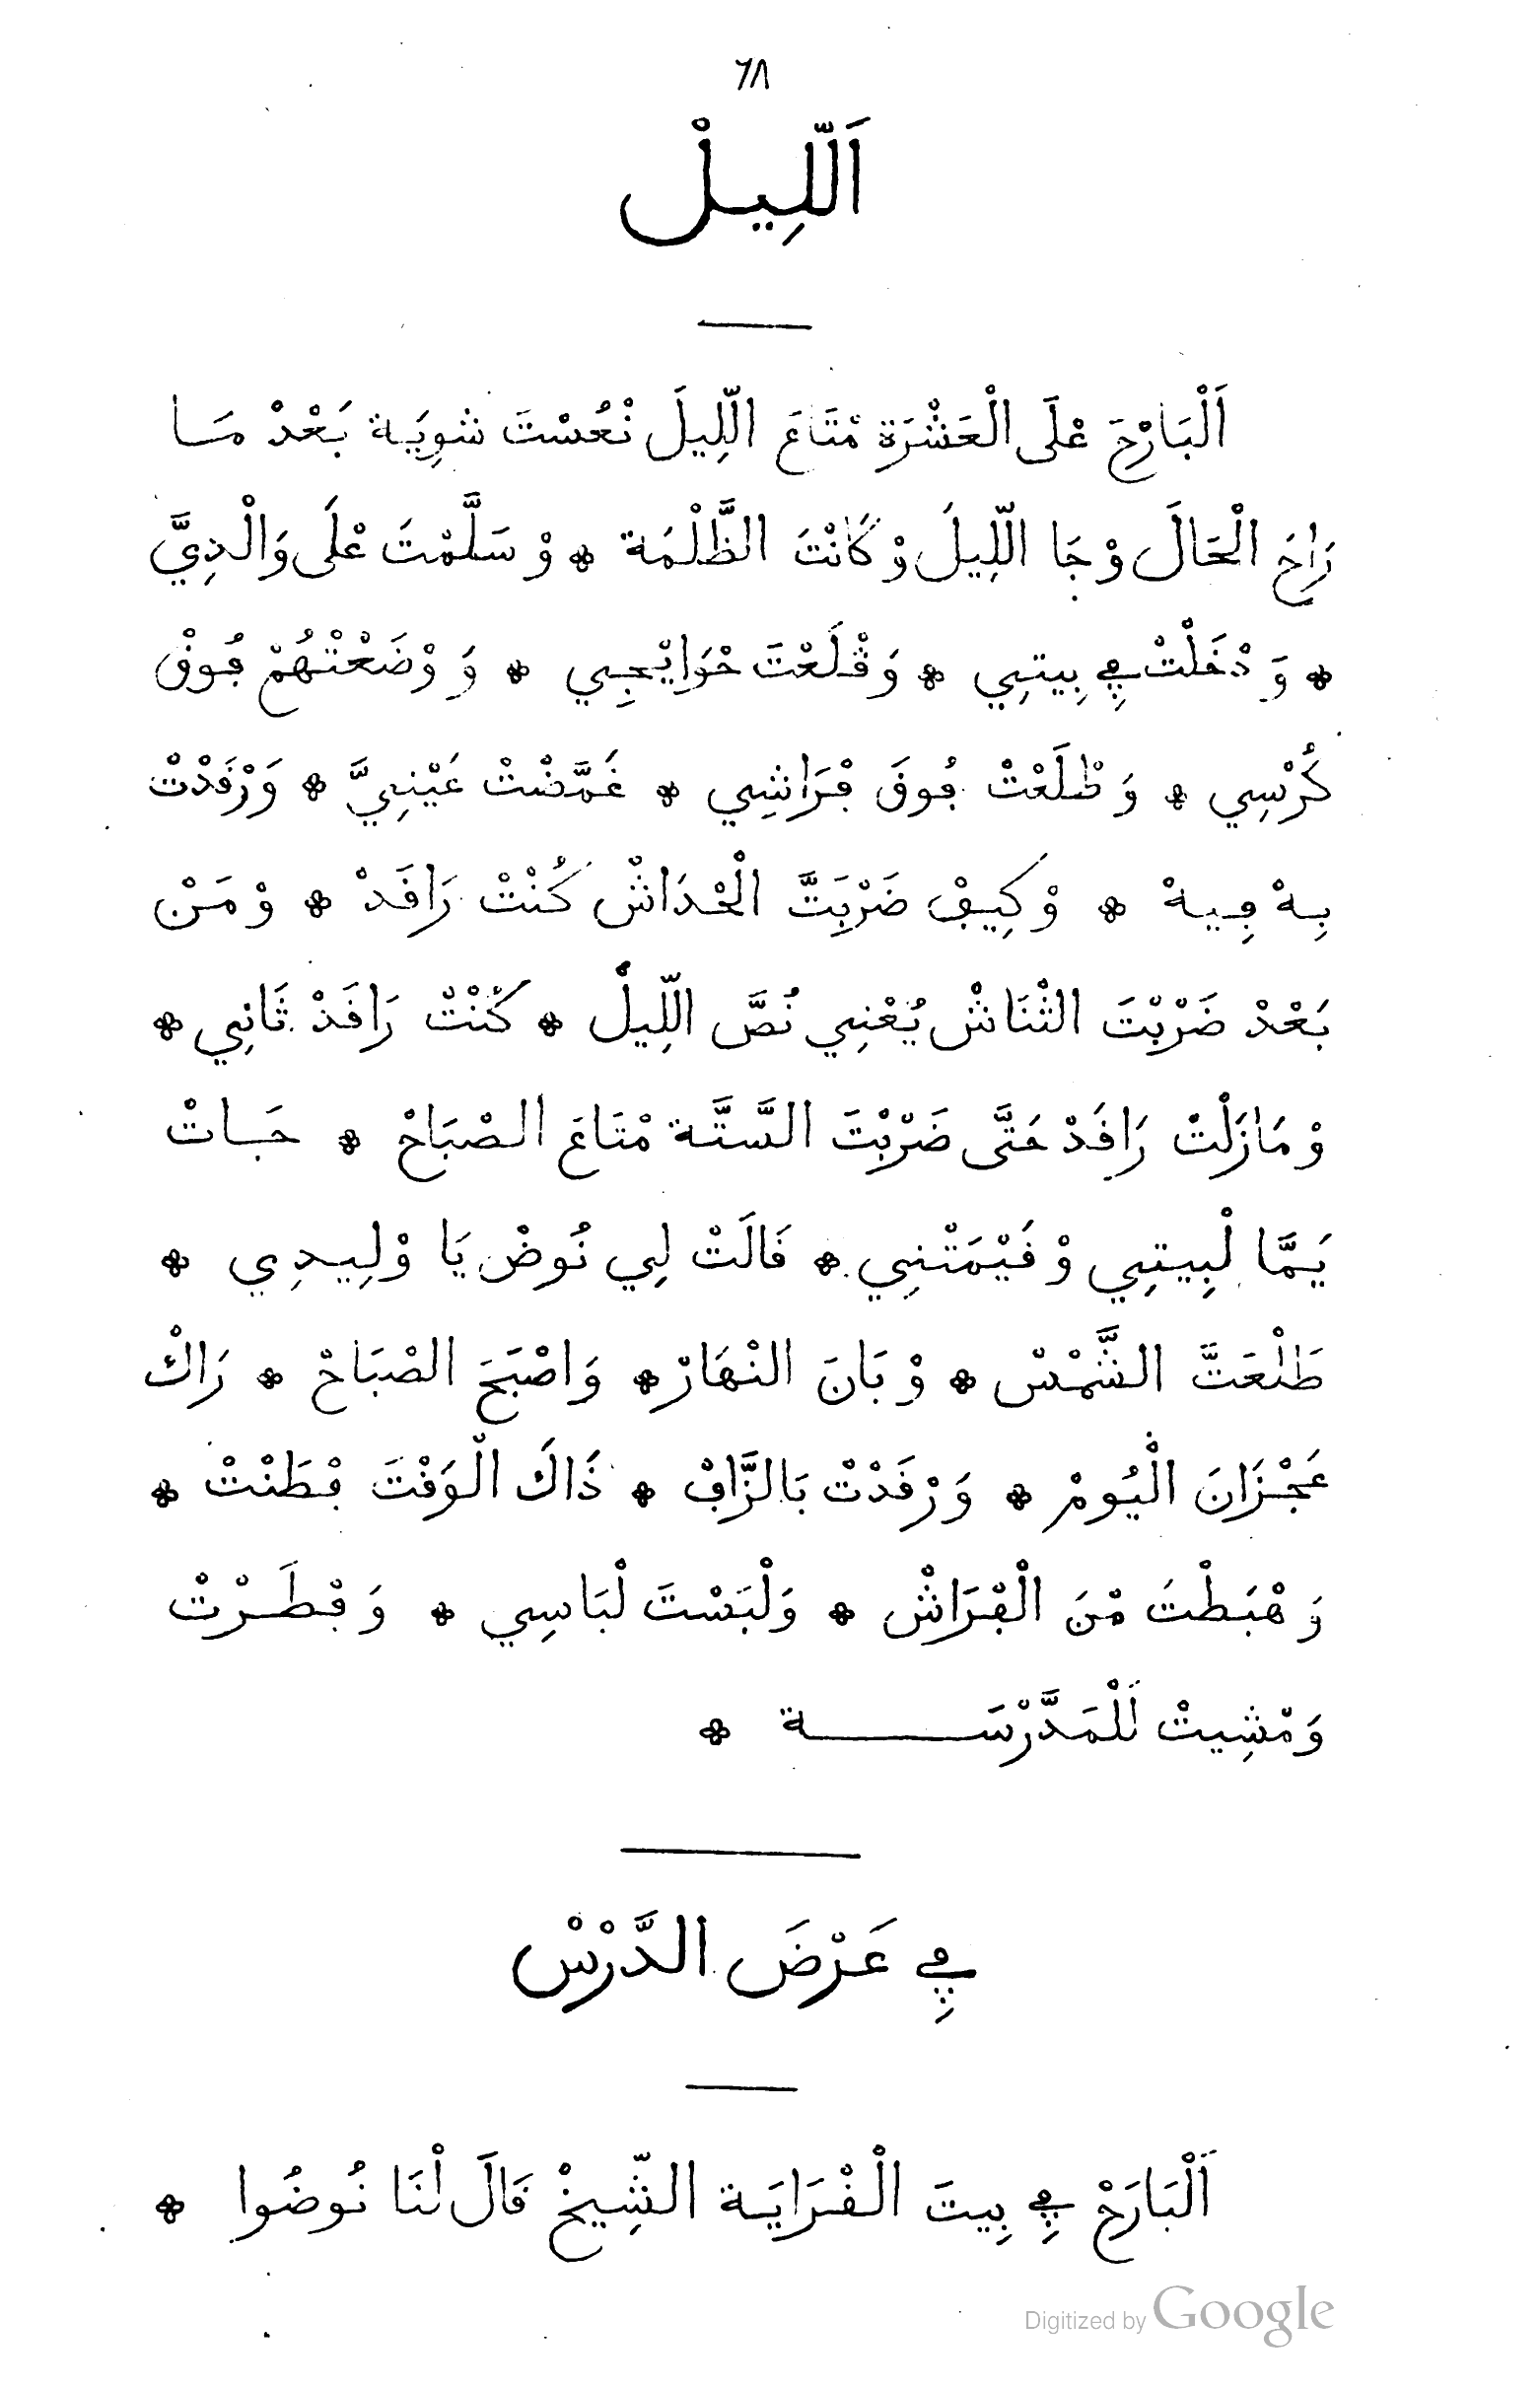 ٦٨
اَللِّيلْ
اَلْبَارْحَ عْلَى الْعَشْرَة مْتَاعَ اللِّيلَ نْعُسْتَ شوِيَة بَعْدْ مَا
رَاحَ الْحَالَ وْجَا اللِّيلَ وْكَانْتَ الظَّلْمَة * وْسَلَّمْتَ عْلَى وَالْدِيَّ
* وَدْخَلْتْ ڢِي بِيتِي * وَڧْلَعْتَ حْوَايْجِي * وَوْضَعْتْهُمْ ڢُوڧْ
كُرْسِي * وَطْلَعْتْ ڢُوڧَ ڢْرَاشِي * غَمَّضْتْ عَيْنِيَّ * وَرْڧَدْتْ
بِهْ ڢِيهْ * وْكِيڢْ ضَرْبِتَّ الْحْدَاشْ كُنْتْ رَاڧَدْ * وْمَنْ
بَعْدْ ضَرْبْتَ الثْنَاشْ يُعْنِي نُصَّ اللِّيلْ * كُنْتْ رَاڧَدْ ثَانِي *
وْمَازَلْتْ رَاڧَدْ حَتَّى ضَرْبْتَ السَّتَّة مْتَاعَ الصْبَاحْ * جَاتْ
يَمَّا لْبِيتِي وْڧَيْمَتْنِي * ڧَالَتْ لِي نُوضْ يَا وْلِيدِي *
طَلْعَتَّ الشَّمْسْ * وْبَانَ النْهَارْ * وَاصْبَحَ الصْبَاحْ * رَاكْ
عَجْزَانَ الْيُومْ * وَرْڧَدْتْ بَالزَّاڢْ * ذَاكَ الْوَڧْتَ ڢْطَنْتْ *
وَهْبَطْتَ مْنَ الْڢْرَاشْ * وَلْبَسْتَ لْبَاسِي * وَڢْطَرْتْ
وَمْشِيتْ لَلْمَدَّرْسَة *
ڢِي عَرْضَ الدَّرْسْ
اَلْبَارَحْ ڢِي بِيتَ الْڧْرَايَة الشِّيخْ ڧَالَ لْنَا نُوضُوا *
Digitized by Google